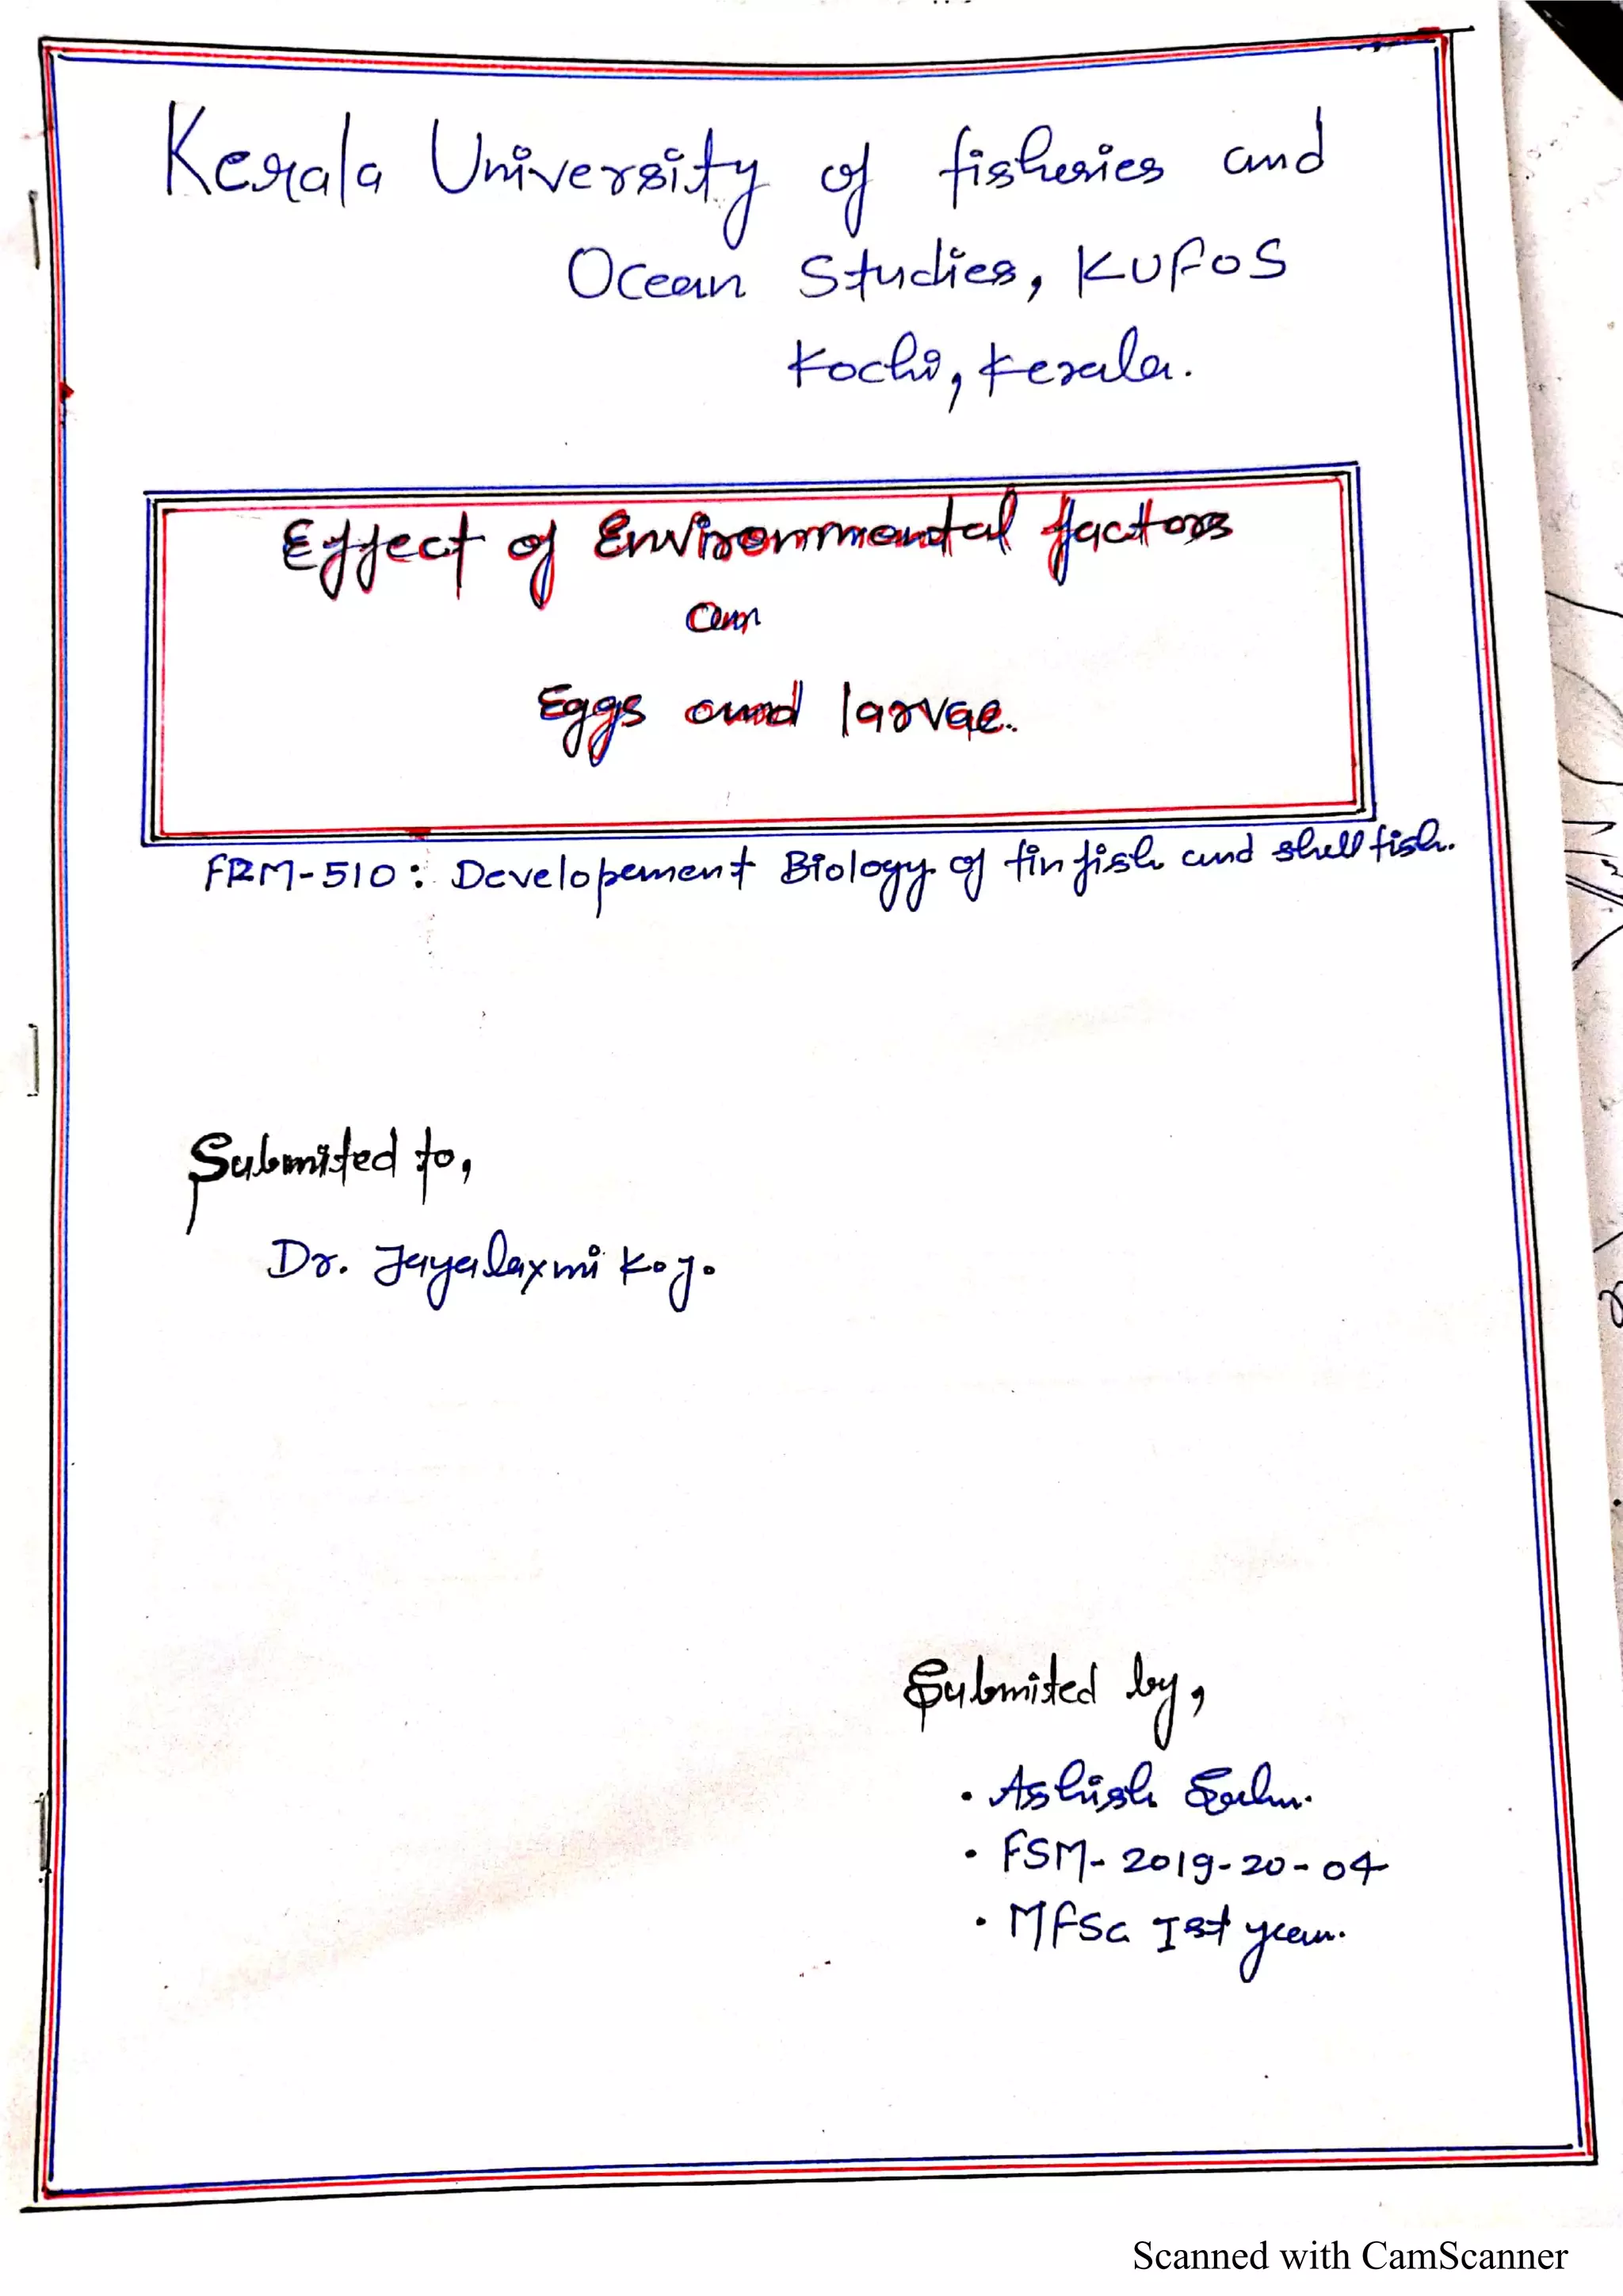 Kerala University of fisheries and
Ocean Studies, KUFOS
Kochi, Kerala.
Effect of Environmental factors
on
Eggs and larvae.
FRM-510: Developement Biology of finfish and shellfish.
Submited to,
Dr. Jayalaxmi K.J.
Submited by,
• Ashish Sahu.
• FSM-2019-20-04
• MFSc Ist year.
Scanned with CamScanner